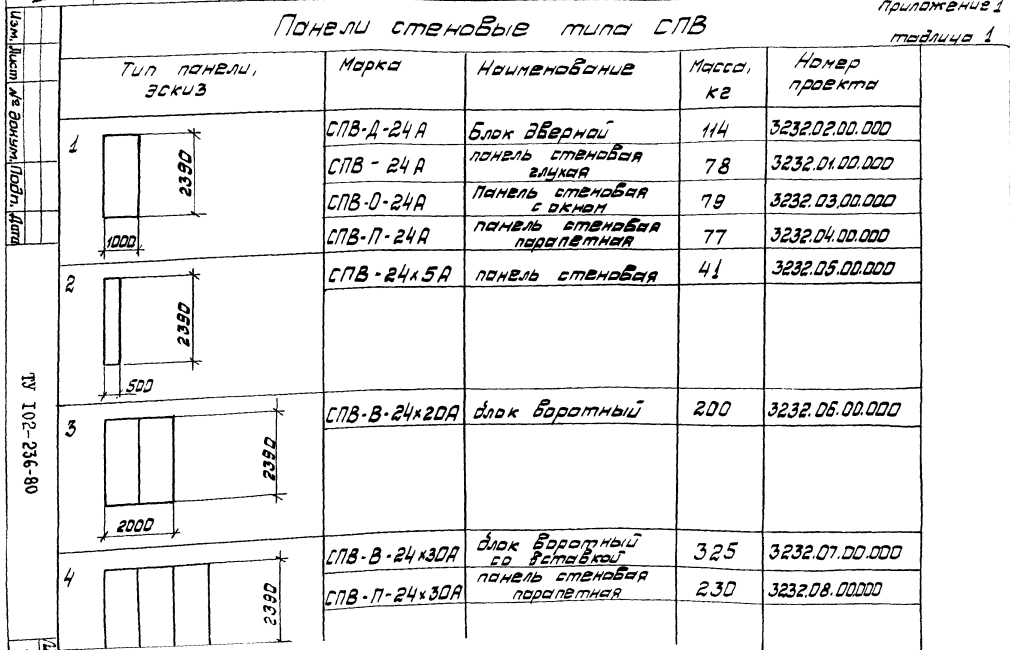 Приложение 1
Панели стеновые типа СПВ
таблица 1
Тип панели, эскиз
Марка
Наименование
Масса, кг
Номер проекта
1
2390
1000
СПВ-Д-24А Блок дверной 114 3232.02.00.000
СПВ-24А панель стеновая глухая 78 3232.01.00.000
СПВ-О-24А Панель стеновая с окном 79 3232.03.00.000
СПВ-П-24А панель стеновая парапетная 77 3232.04.00.000
2
2390
500
СПВ-24х5А панель стеновая 41 3232.05.00.000
3
2390
2000
СПВ-В-24х20А блок воротный 200 3232.06.00.000
4
2390
СПВ-В-24х30А блок воротный со вставкой 325 3232.07.00.000
СПВ-П-24х30А панель стеновая парапетная 230 3232.08.00.000
Изм. Лист № докум. Подп. Дата
ТУ 102-236-80